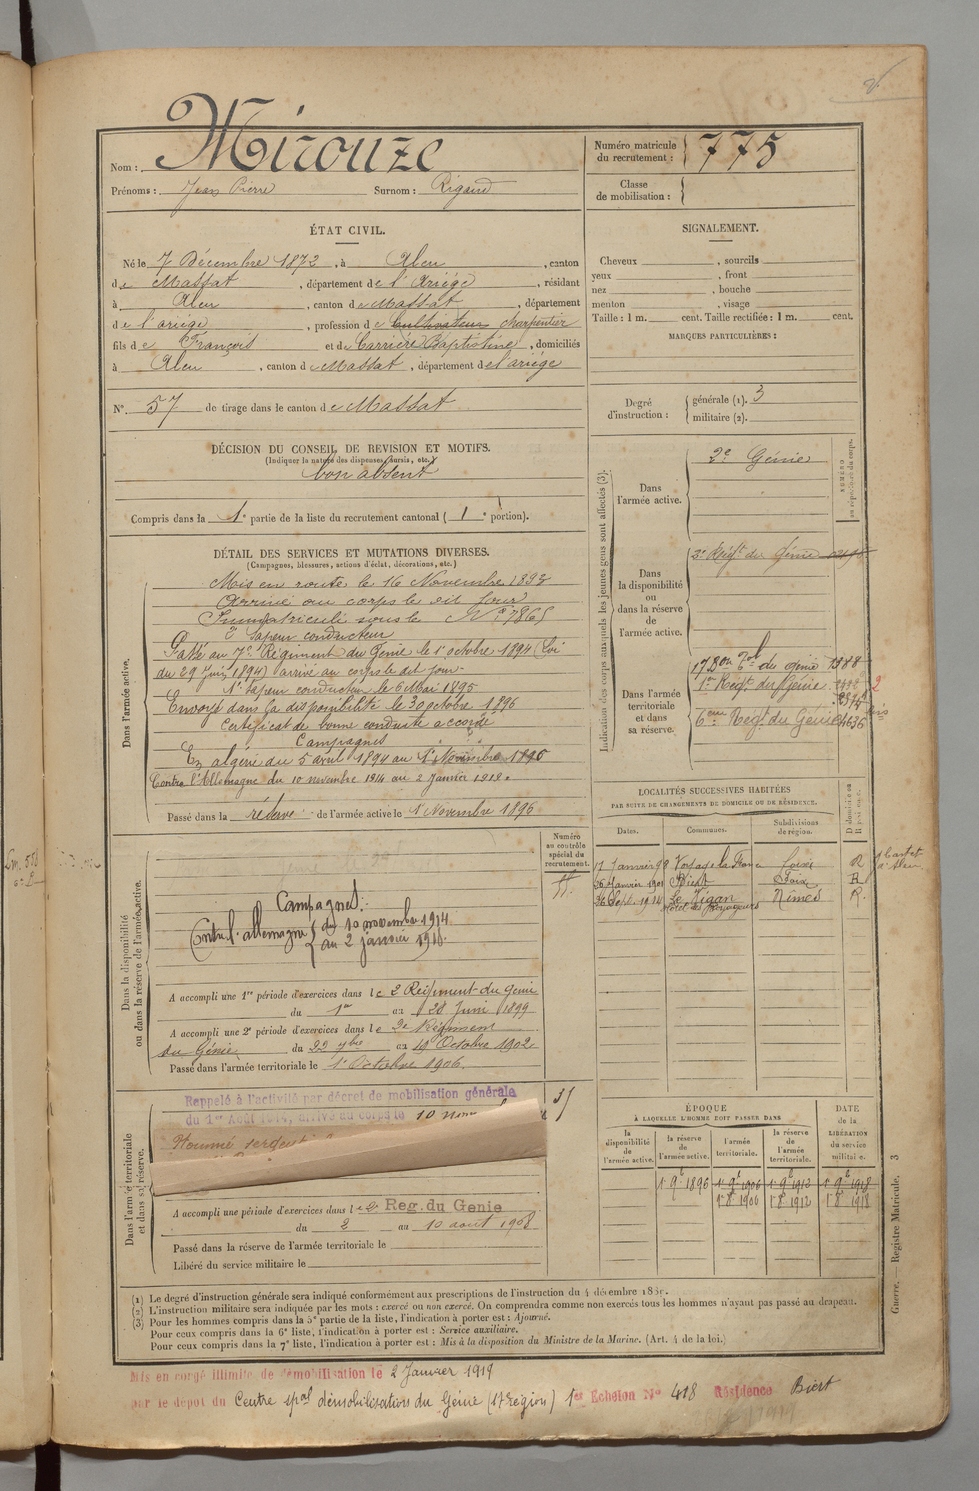 Nom : Mirouze
Prénoms : Jean Pierre Surnom : Rigaud
Numéro matricule du recrutement : 775
Classe de mobilisation :
ÉTAT CIVIL.
Né le 7 Décembre 1872, à Aleu, canton
de Massat, département de l'Ariège, résidant
à Aleu, canton de Massat, département
de l'ariège, profession de Cultivateur charpentier
fils de François et de Carrière Baptistine, domiciliés
à Aleu, canton de Massat, département de l'ariège
N° 57 de tirage dans le canton de Massat
DÉCISION DU CONSEIL DE REVISION ET MOTIFS.
(Indiquer la nature des dispenses, sursis, etc.)
bon absent
Compris dans la 1e partie de la liste du recrutement cantonal ( 1e portion).
DÉTAIL DES SERVICES ET MUTATIONS DIVERSES.
(Campagnes, blessures, actions d'éclat, décorations, etc.)
Dans l'armée active.
Mis en route le 16 Novembre 1893
Arrivé au corps le dit jour
Immatriculé sous le N° 7865
2e Sapeur conducteur
Passé au 7e Régiment du Génie le 1er octobre 1894 (Loi
du 29 Juin 1894) arrivé au corps le dit jour.
1er sapeur conducteur le 6 Mai 1895
Envoyé dans la disponibilité le 30 octobre 1896
Certificat de bonne conduite accordé
Campagnes
En algérie du 5 avril 1894 au 1er Novembre 1896
Contre l'Allemagne du 10 novembre 1914 au 2 Janvier 1919.
Passé dans la réserve de l'armée active le 1er Novembre 1896
Numéro au contrôle spécial du recrutement.
Dans la disponibilité ou dans la réserve de l'armée active.
Campagnes:
Contre l'allemagne { du 10 novembre 1914
au 2 janvier 1919.
A accompli une 1re période d'exercices dans le 2 Régiment du Génie
du 1er au 28 Juin 1899
A accompli une 2e période d'exercices dans le 2e Régiment
du Génie du 22 7bre au 19 Octobre 1902
Passé dans l'armée territoriale le 1er Octobre 1906.
Dans l'armée territoriale et dans sa réserve.
Rappelé à l'activité par décret de mobilisation générale
du 1er Août 1914, arrivé au corps le 10
Nommé sergent
A accompli une période d'exercices dans le 2e Reg. du Genie
du 2 au 10 août 1908
Passé dans la réserve de l'armée territoriale le
Libéré du service militaire le
SIGNALEMENT.
Cheveux , sourcils
yeux , front
nez , bouche
menton , visage
Taille : 1 m. cent. Taille rectifiée : 1 m. cent.
MARQUES PARTICULIÈRES :
Degré d'instruction : générale (1). 3
militaire (2).
Indication des corps auxquels les jeunes gens sont affectés (3).
NUMÉRO au répertoire du corps.
Dans l'armée active.
2e Génie
Dans la disponibilité ou dans la réserve de l'armée active.
2e Régt du Génie
Dans l'armée territoriale et dans sa réserve.
17 Bon Tal du génie 1388
1er Régt du Génie
6eme Régt du Génie 4636
LOCALITÉS SUCCESSIVES HABITÉES
PAR SUITE DE CHANGEMENTS DE DOMICILE OU DE RÉSIDENCE.
Dates. Communes. Subdivisions de région. D domicile ou R résidence.
17 Janvier 99 Voyage la France Foix R
26 Janvier 1901 Biert Foix R
26 Sept. 1914 Le Vigan Nîmes R.
Hôtel des Voyageurs
ÉPOQUE
À LAQUELLE L'HOMME DOIT PASSER DANS
la disponibilité de l'armée active. la réserve de l'armée active. l'armée territoriale. la réserve de l'armée territoriale. DATE de la LIBÉRATION du service militaire.
1er 9e 1896 1er 9e 1906 1er 9e 1912 1er 9e 1918
1er 8e 1906 1er 8e 1912 1er 8e 1918
(1) Le degré d'instruction générale sera indiqué conformément aux prescriptions de l'instruction du 4 décembre 18
(2) L'instruction militaire sera indiquée par les mots : exercé ou non exercé. On comprendra comme non exercés tous les hommes n'ayant pas passé au drapeau.
(3) Pour les hommes compris dans la 5e partie de la liste, l'indication à porter est : Ajourné.
Pour ceux compris dans la 6e liste, l'indication à porter est : Service auxiliaire.
Pour ceux compris dans la 7e liste, l'indication à porter est : Mis à la disposition du Ministre de la Marine. (Art. 4 de la loi.)
Guerre. — Registre Matricule. 3
Mis en congé illimité de démobilisation le 2 Janvier 1919
par le dépôt du Centre spal démobilisation du Génie (17e région) 1er Echelon N° 418 Résidence Biert